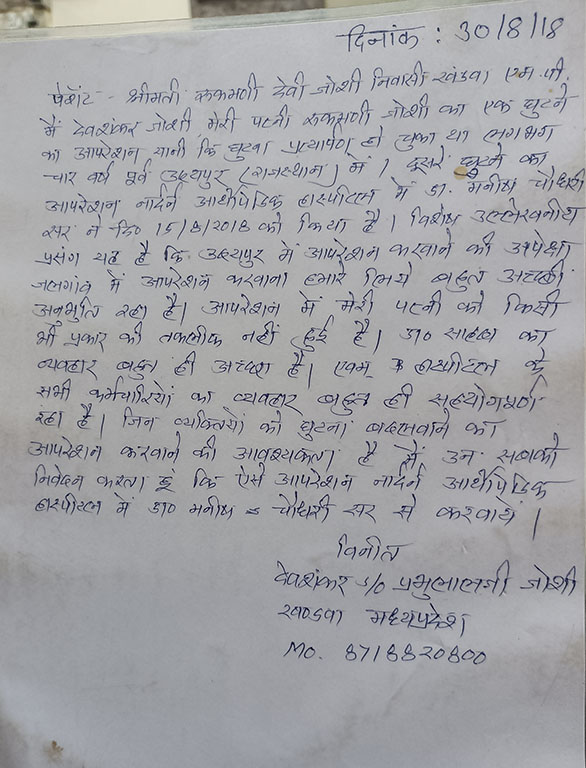 दिनांक : 30/8/18
पेशेंट - श्रीमती रूकमणी देवी जोशी निवासी खंडवा एम.पी.
मैं देवशंकर जोशी मेरी पत्नी रूकमणी जोशी का एक घुटने
का आपरेशन यानी कि घुटना प्रत्यार्पण हो चुका था लगभग
चार वर्ष पूर्व उदयपुर (राजस्थान) में। दूसरे घुटने का
आपरेशन नार्दन आर्थोपेडिक हास्पीटल में डा. मनीष चौधरी
सर ने दि० 15/8/2018 को किया है। विशेष उल्लेखनीय
प्रसंग यह है कि उदयपुर में आपरेशन करवाने की अपेक्षा
जलगांव में आपरेशन करवाना हमारे लिये बहुत अच्छी
अनुभुति रहा है। आपरेशन में मेरी पत्नी को किसी
भी प्रकार की तकलीफ नहीं हुई है। डा० साहब का
व्यवहार बहुत ही अच्छा है। एवम् हास्पीटल के
सभी कर्मचारियों का व्यवहार बहुत ही सहयोगपूर्ण
रहा है। जिन व्यक्तियों को घुटना बदलवाने का
आपरेशन करवाने की आवश्यकता है मैं उन सबको
निवेदन करता हूं कि ऐसे आपरेशन नार्दन आर्थोपेडिक
हास्पीटल में डा० मनीष चौधरी सर से करवाये।
विनीत
देवशंकर S/o प्रभुलालजी जोशी
खण्डवा मध्यप्रदेश
Mo. 8718820800